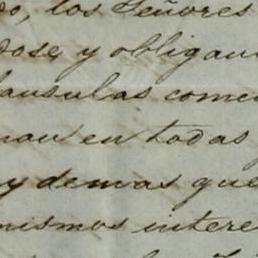 do, los Señores
dose y obligan
lausulas come
nan en todas
y demas que
mismos intere